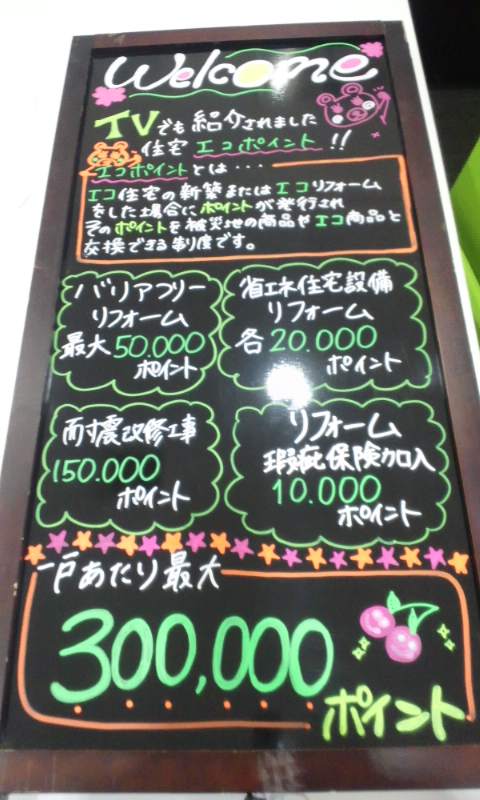 Welcome
TVでも紹介されました
住宅エコポイント!!
エコポイントとは・・・
エコ住宅の新築またはエコリフォーム
をした場合にポイントが発行され
そのポイントを被災地の商品やエコ商品と
交換できる制度です。
バリアフリー
リフォーム
最大50.000
ポイント
省エネ住宅設備
リフォーム
各20.000
ポイント
耐震改修工事
150.000
ポイント
リフォーム
瑕疵保険加入
10.000
ポイント
一戸あたり最大
300,000
ポイント